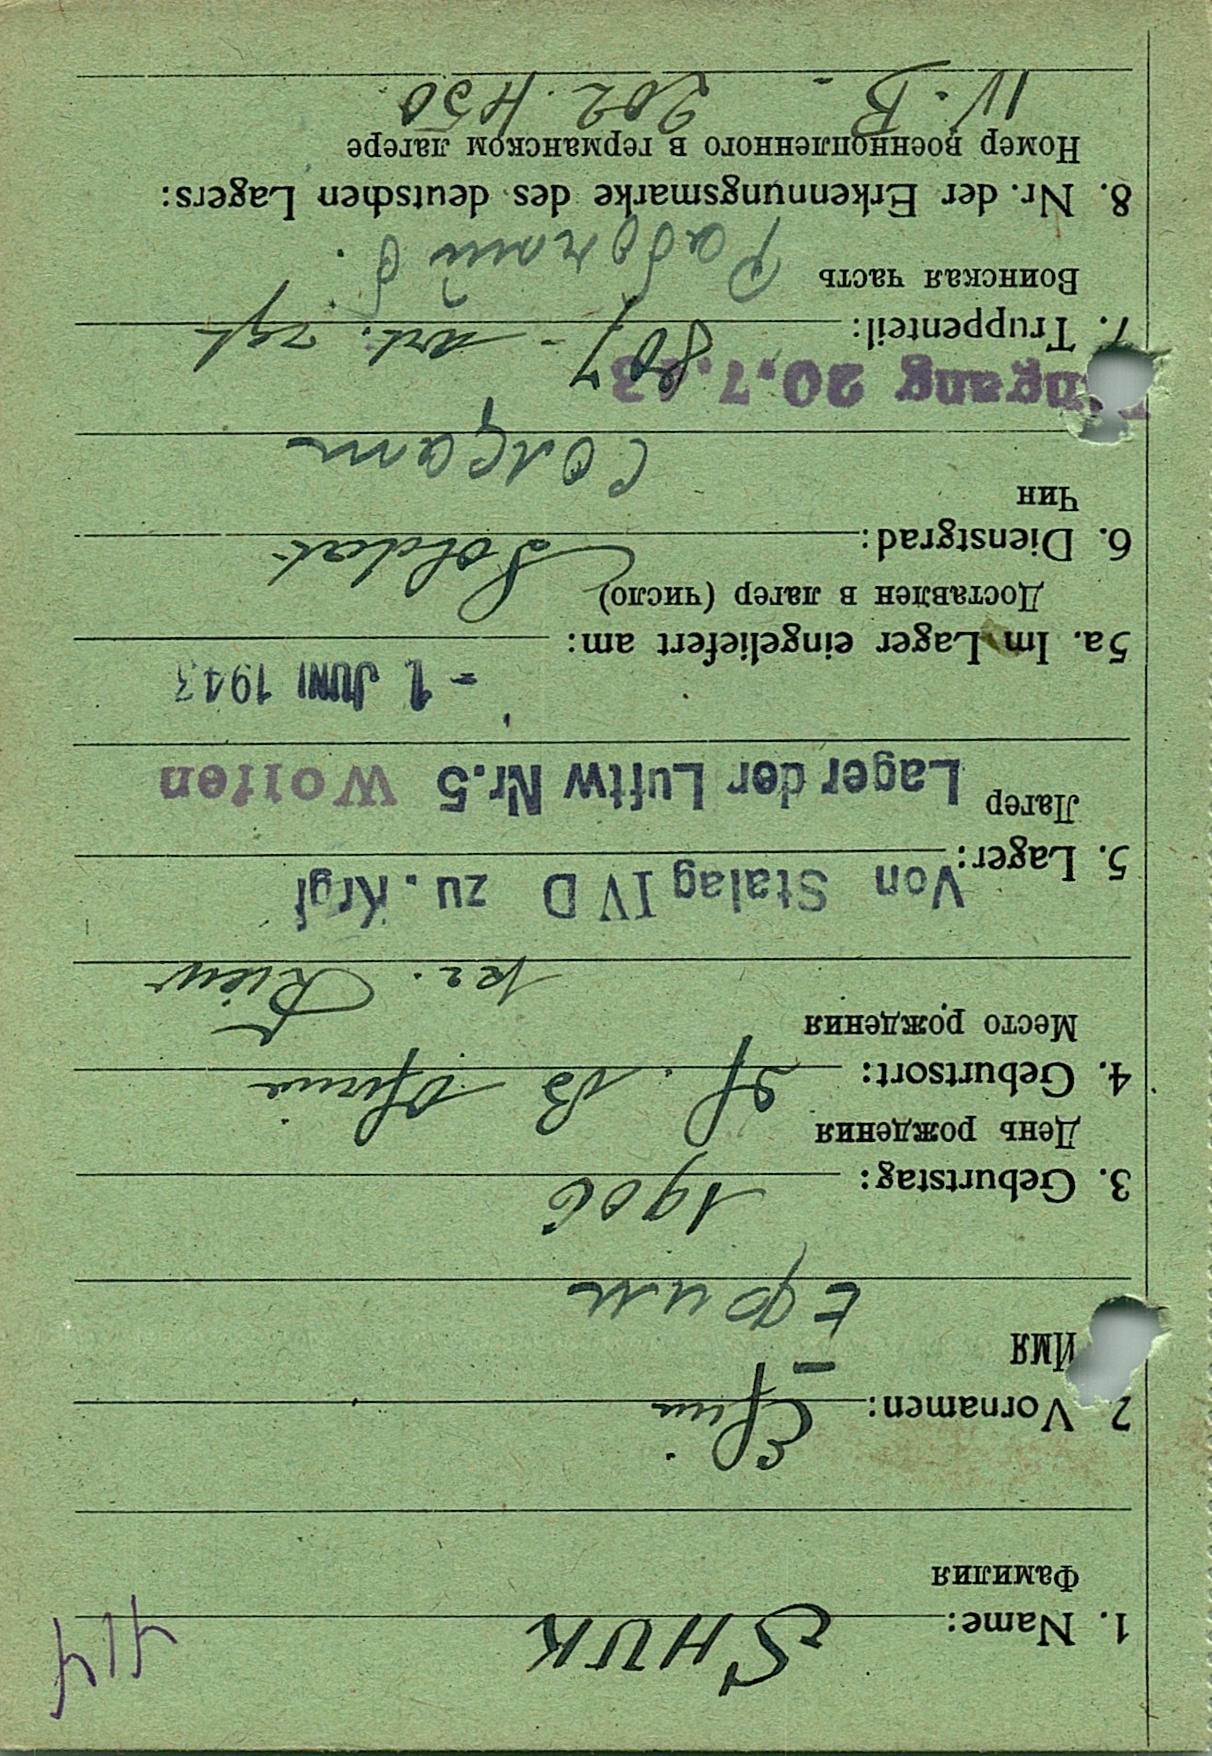 414
1. Name: SHUK
Фамилия
2. Vornamen: Efim
Имя Ефим
3. Geburtstag: 1906
День рождения
4. Geburtsort:
Место рождения
kr. Kiew
Von Stalag IV D zu. Krgf
5. Lager:
Лагер Lager der Luftw Nr.5 Wolfen
- 1. JUNI 1943
5a. Im Lager eingeliefert am:
Доставлен в лагер (число)
6. Dienstgrad: Soldat
Чин солдат
Eingang 20.7.43
7. Truppenteil: 807 - Art. rgt
Воинская часть
8. Nr. der Erkennungsmarke des deutschen Lagers:
Номер военнопленного в германском лагере
IV. B. - 202.450